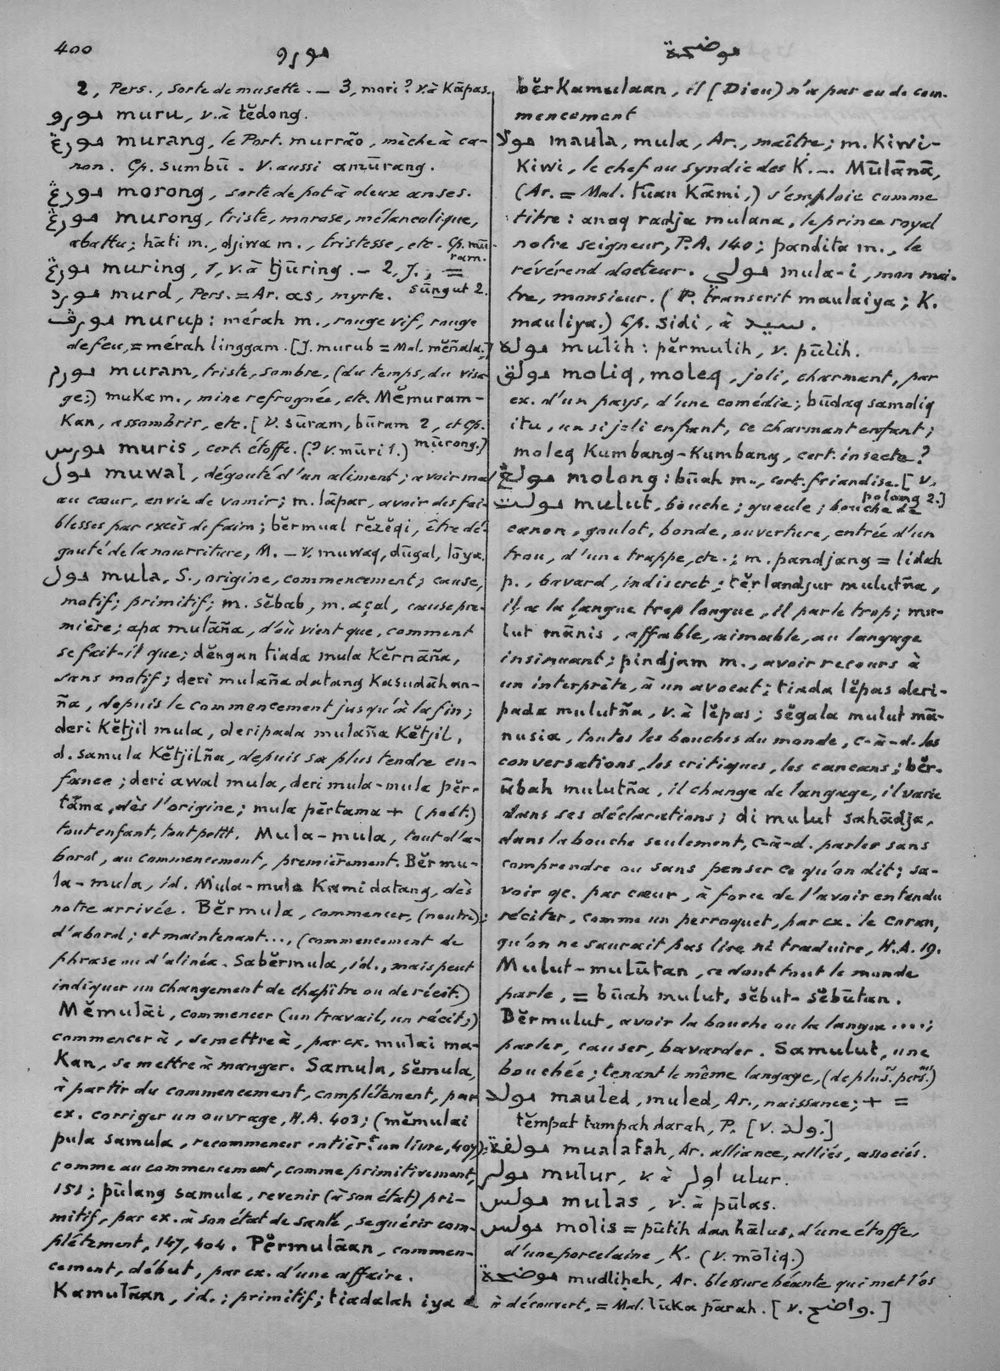 400
مورو
موضحة
2, Pers., sorte de musette. — 3, mori? v. à Kāpas.
مورو muru, v. à tĕdong.
مورڠ murang, le Port. murrão, mèche à ca-
non. Cp. sumbū. V. aussi amūrang.
مورڠ morong, sorte de pot à deux anses.
مورڠ murong, triste, morose, mélancolique,
abattu; hāti m., djiwa m., tristesse, etc. Cp. mū-
ram.
مورڠ muring, 1, v. à tjūring. — 2, J., =
sūngut 2.
مورد murd, Pers. = Ar. as, myrte.
مورڤ murup: mérah m., rouge vif, rouge
de feu, = mérah linggam. [J. murub = Mal. mĕñala.]
مورم muram, triste, sombre, (du temps, du visa-
ge;) muka m., mine refrognée, etc. Mĕmuram-
kan, assombrir, etc. [V. sūram, būram 2, et Cp.
mūrong.]
مورس muris, cert. étoffe. (? v. mūri 1.)
مول muwal, dégouté d'un aliment; avoir mal
au cœur, envie de vomir; m. lāpar, avoir des fai-
blesses par excès de faim; bĕrmual rĕzĕqi, être dé-
gouté de la nourriture, M. — V. muwaq, dūgal, lōya.
مول mula, S., origine, commencement; cause,
motif; primitif; m. sĕbab, m. açal, cause pre-
mière; apa mulāña, d'où vient que, comment
se fait-il que; dĕngan tiada mula kĕrnāña,
sans motif; deri mulaña datang kasudāhan-
ña, depuis le commencement jusqu'à la fin;
deri kĕtjil mula, deripada mulaña kĕtjil,
d. samula kĕtjilña, depuis sa plus tendre en-
fance; deri awal mula, deri mula-mula pĕr-
tāma, dès l'origine; mula pĕrtama + (poét.)
tout enfant, tout petit. Mula-mula, tout d'a-
bord, au commencement, premièrement. Bĕrmu-
la-mula, id. Mula-mula kami datang, dès
notre arrivée. Bĕrmula, commencer, (neutre);
d'abord; et maintenant..., (commencement de
phrase ou d'alinéa. Sabĕrmula, id., mais peut
indiquer un changement de chapître ou de récit.)
Mĕmulāi, commencer (un travail, un récit;)
commencer à, se mettre à, par ex. mulai ma-
kan, se mettre à manger. Samula, sĕmula,
à partir du commencement, complétement, par
ex. corriger un ouvrage, H.A. 403; (mĕmulai
pula samula, recommencer entièrt. un livre, 407);
comme au commencement, comme primitivement,
151; pūlang samula, revenir (à son état) pri-
mitif, par ex. à son état de santé, se guérir com-
plétement, 147, 404. Pĕrmulāan, commen-
cement, début, par ex. d'une affaire.
Kamulāan, id.; primitif; tiadalah iya
bĕrkamulaan, il (Dieu) n'a pas eu de com-
mencement
مولا maula, mula, Ar., maître; m. Kiwi-
Kiwi, le chef ou syndic des K. — Mūlānā,
(Ar. = Mal. tūan kāmi,) s'emploie comme
titre: anaq radja mulana, le prince royal
notre seigneur, P.A. 140; pandita m., le
révérend docteur. مولى mula-i, mon maî-
tre, monsieur. (P. transcrit maulaiya; K.
mauliya.) Cp. sidi, à سيد.
موله mulih: pĕrmulih, v. pūlih.
مولق moliq, moleq, joli, charmant, par
ex. d'un pays, d'une comédie; būdaq samoliq
itu, un si joli enfant, ce charmant enfant;
moleq kumbang-kumbang, cert. insecte?
مولڠ molong: būah m., cert. friandise. [V.
polong 2.]
مولت mulut, bouche; gueule; bouche de
canon, goulot, bonde, ouverture, entrée d'un
trou, d'une trappe, etc.; m. pandjang = lidah
p., bavard, indiscret; tĕrlandjur mulutña,
il a la langue trop longue, il parle trop; mu-
lut mānis, affable, aimable, au langage
insinuant; pindjam m., avoir recours à
un interprète, à un avocat; tiada lĕpas deri-
pada mulutña, v. à lĕpas; sĕgala mulut mā-
nusia, toutes les bouches du monde, c-à-d. les
conversations, les critiques, les cancans; bĕr-
ūbah mulutña, il change de langage, il varie
dans ses déclarations; di mulut sahādja,
dans la bouche seulement, c-à-d. parler sans
comprendre ou sans penser ce qu'on dit; sa-
voir qc. par cœur, à force de l'avoir entendu
réciter, comme un perroquet, par ex. le Coran,
qu'on ne saurait pas lire ni traduire, H.A. 19.
Mulut-mulūtan, ce dont tout le monde
parle, = būah mulut, sĕbut-sĕbūtan.
Bĕrmulut, avoir la bouche ou la langue ....;
parler, causer, bavarder. Samulut, une
bouchée; tenant le même langage, (de plusrs. persnes.)
مولد mauled, muled, Ar., naissance; + =
tĕmpat tumpah darah, P. [V. ولد.]
مولفة mualafah, Ar. alliance, alliés, associés.
مولر mulur, v. à اولر ulur.
مولس mulas, v. à pūlas.
مولس molis = pūtih dan hālus, d'une étoffe,
d'une porcelaine, K. (V. mōliq.)
موضحة mudliḥeh, Ar. blessure béante qui met l'os
à découvert, = Mal. lūka pārah. [V. واضح.]